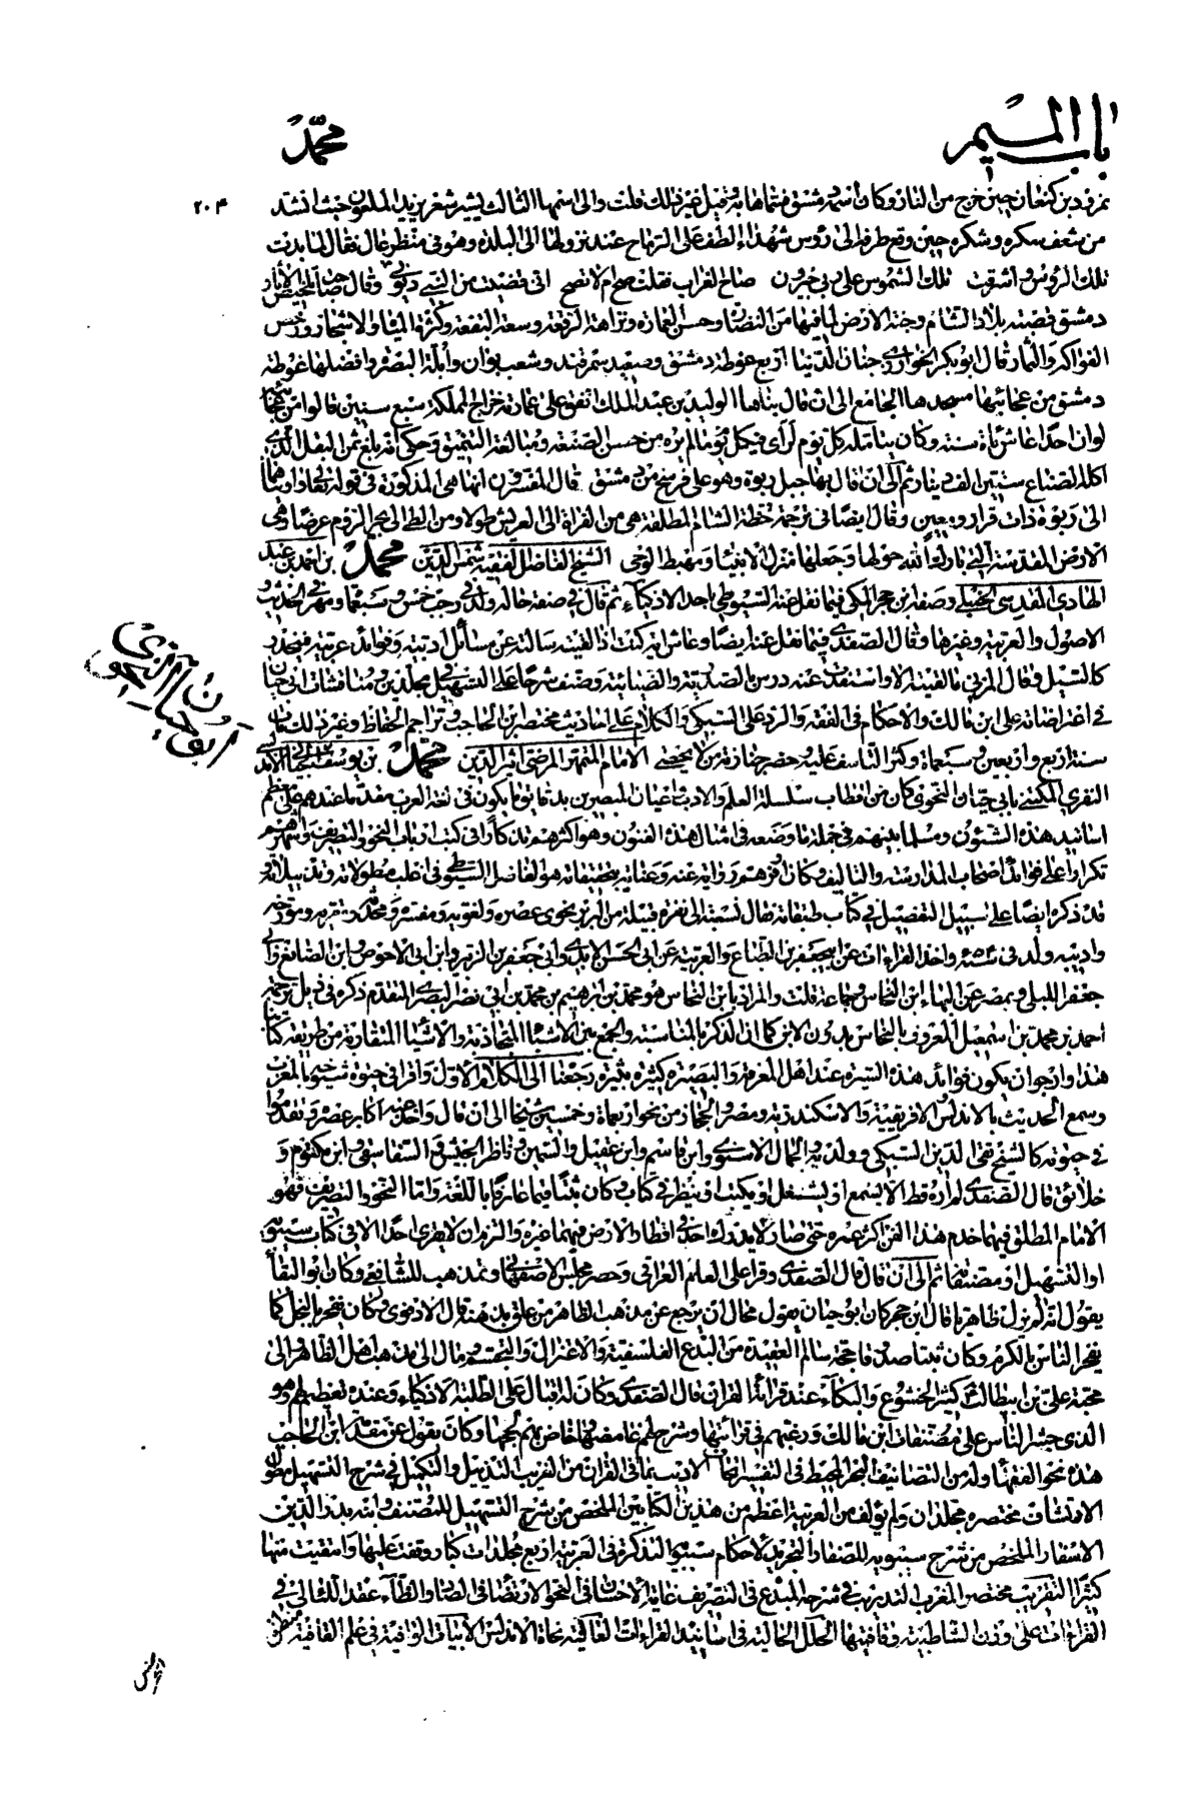 باب الميم
محمد
٢٠٤
نمرود بن كنعان حين خرج من النار وكان اسمه دمشق فسماها به وقيل غير ذلك قلت والى اسمها الثالث يشير شعر يزيد الملعون حيث انشد
من شعف سكره وشكره حين وقع طرفه الى رؤس شهداء الطف على الرماح عند نزولها الى البلدة وهو فى منظر عال فقال لما بدت
تلك الرؤس واشرقت تلك الشموس على ربى جيرون صاح الغراب فقلت صح ام لا تصح انى قضيت من النبى ديونى وقال صاحب تلخيص الآثار
دمشق قصبة بلاد الشام وجنة الارض لما فيها من النضارة وحسن العمارة ونزاهة الرقعة وسعة البقعة وكثرة المياه والاشجار ورخص
الفواكه والثمار قال ابو بكر الخوارزمى جنان الدنيا اربع غوطة دمشق وصغد سمرقند وشعب بوان وابلة البصرة وافضلها غوطة
دمشق من عجائبها مسجدها الجامع الى ان قال بناها الوليد بن عبد الملك انفق على عمارته خراج المملكة سبع سنين قالوا من عجائبها
لو ان احدا عاش مأة سنة وكان يتأمله كل يوم لرأى فى كل يوم ما لم يره من حسن الصنعة ومبالغة التنميق وحكى انه بلغ ثمن البقل الذى
اكله الصناع ستين الف دينار ثم الى ان قال بها جبل ربوة وهو على فرسخ من دمشق قال المفسرون انها هى المذكورة فى قوله تعالى وآويناهما
الى ربوة ذات قرار ومعين وقال ايضا فى ترجمة خطة الشام المطلقة هى من الفراة الى العريش طولا ومن الطى الى بحر الروم عرضا وهى
الارض المقدسة التى بارك الله حولها وجعلها منزل الانبياء ومهبط الوحى الشيخ الفاضل الفقيه شمس الدين محمد بن احمد بن عبد
الهادى المقدسى الحنبلى وصفه ابن حجر المكى فيما نقل عنه السيوطى باحد الاذكياء ثم قال فى صفة حاله ولد فى رجب خمس وسبعمأة ومهر فى الحديث و
الاصول والعربية وغيرها وقال الصفدى فيما نقل عنه ايضا لو عاش لكان آية كنت اذا لقيته سالته عن مسائل ادبية وفوائد عربية فينحدر
كالسيل وقال المزى ما لقيته الا واستفدت عنه درس بالصدرية والضيائية وصنف شرحا على التسهيل فى مجلدين ومناقشات ابى حيان
فى اعتراضاته على ابن مالك والاحكام فى الفقه والرد على السبكى والكلام على احاديث مختصر ابن الحاجب وتراجم الحفاظ وغير ذلك مات
سنة اربع واربعين وسبعمأة وكثر التأسف عليه وحضر جنازته من لا يحصى الامام المتمهر المرضى اثير الدين محمد بن يوسف بن حيان الاندلسى
النفزى المكنى بابى حيان النحوى كان من اقطاب سلسلة العلم والادب واعيان المبصرين بدقايق ما يكون فى لغة العرب مقدما عندهم على معظم
اساتيد هذه الشئون ومسلما بينهم فى جملة ما وضعه فى امثال هذه الفنون وهو اكثرهم تذكارا فى كتب ارباب النحو والتصريف واشهرهم
تكرارا على فوائد اصحاب المدارسة والتاليف وكان اوفرهم رواية عنه وعناية بتحقيقاته هو الفاضل السيوطى فى اغلب مطولاته وتذييلاته
قد ذكره ايضا على سبيل التفصيل فى كتاب طبقاته قال نسبة الى نفزة قبيلة من البربر نحوى عصره ولغويه ومفسره ومحدثه ومقريه ومورخه
واديبه ولد فى واخذ القراءات عن ابى جعفر بن الطباع والعربية عن ابى الحسن الابذى وابى جعفر بن الزبير وابن ابى الاحوص وابن الصائغ وابى
جعفر اللبلى وبمصر عن البهاء ابن النحاس وجماعة قلت والمراد بابن النحاس هو محمد بن ابرهيم بن محمد بن ابى نصر البصرى المتقدم ذكره فى ذيل ترجمة
احمد بن محمد بن اسمعيل المعروف بالنحاس بدون الابن كما ان الذكر بالمناسبة والجمع بين الاشباه المتجاذبة والاشياء المتقاربة من طريقة كتابنا
هذا وارجو ان يكون فوائد هذه السيرة عند اهل المعرفة والبصيرة كثيرة مثيرة رجعنا الى الكلام الاول واقرأ فى حيوة شيوخه بالمغرب
وسمع الحديث بالاندلس والافريقية والاسكندرية ومصر والحجاز من نحو اربعمأة وخمسين شيخا الى ان قال واخذ عنه اكابر عصره وتقدموا
فى حيوته كالشيخ تقى الدين السبكى وولديه والجمال الاسنوى وابن قاسم وابن عقيل والسمين وناظر الجيش والسفاقسى وابن مكتوم و
خلائق قال الصفدى لم اره قط الا يسمع او يشتغل او يكتب او ينظر فى كتاب وكان ثبتا قيما عارفا باللغة واما النحو والتصريف فهو
الامام المطلق فيهما خدم هذا الفن اكثر عمره حتى صار لا يدركه احد فى اقطار الارض فيهما غيره والتزم ان لا يقرى احدا الا فى كتاب سيبويه
او التسهيل او مصنفاته ثم الى ان قال قال الصفدى وقرأ على العلم العراقى وحضر مجلس الاصفهانى وتمذهب للشافعى وكان ابو البقاء
يقول انه لم يزل ظاهريا قال ابن حجر كان ابو حيان يقول محال ان يرجع عن مذهب الظاهر من علق بذهنه قال الادفوى وكان يفخر بالبخل كما
يفخر الناس بالكرم وكان ثبتا صدوقا حجة سالم العقيدة من البدع الفلسفية والاعتزال والتجسيم ومال الى مذهب اهل الظاهر والى
محبة على بن ابيطالب كثير الخشوع والبكاء عند قرائة القران قال الصفدى وكان له اقبال على الطلبة الاذكياء وعنده تعظيم لهم وهو
الذى جسر الناس على مصنفات ابن مالك ورغبهم فى قرائتها وشرح لهم غامضها وخاض بهم لججها وكان يقول عن مقدمة ابن الحاجب
هذه نحو الفقهاء وله من التصانيف البحر المحيط فى التفسير اتحاف الاديب بما فى القران من الغريب التذييل والتكميل فى شرح التسهيل مطول
الارتشاف مختصره مجلدان ولم يؤلف من العربية اعظم من هذين الكتابين الملخص من شرح التسهيل للمصنف وابنه بدر الدين
الاسفار الملخص من شرح سيبويه للصفار التجريد لاحكام سيبويه التذكرة فى العربية اربع مجلدات كبار وقفت عليها وانتقيت منها
كثيرا التقريب مختصر المقرب التدريب فى شرحه المبدع فى التصريف غاية الاحسان فى النحو الارتضاء فى الضاد والظاء عقد اللئالى فى
القراءات على وزن الشاطبية وقافيتها الحلل الحالية فى اسانيد القراءات العالية نحاة الاندلس الابيات الوافية فى علم القافية منطق